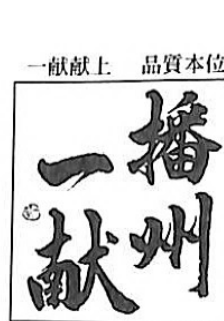 一献献上 品質本位
播州
一献